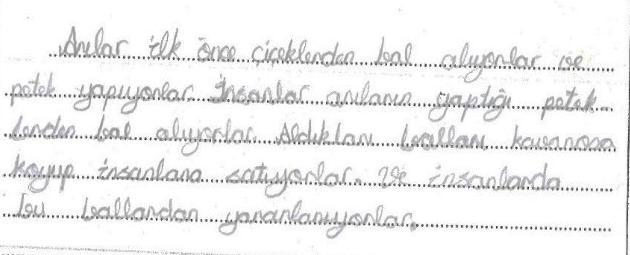 Arılar ilk önce çiçeklerden bal alıyorlar ve
petek yapıyorlar. İnsanlar arıların yaptığı petek
lerden bal alıyorlar. Aldıkları balları kavanoza
koyup insanlara satıyorlar. Ve insanlarda
bu ballardan yararlanıyorlar.